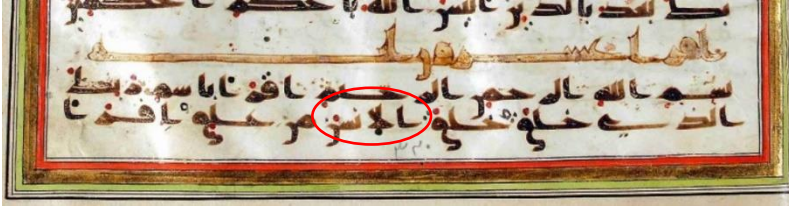 بك بعد بالدين اليس الله باحكم الحكمين
بسم الله الرحمن الرحيم اقرا باسم ربك
الذي خلق خلق الانسن من علق اقرا